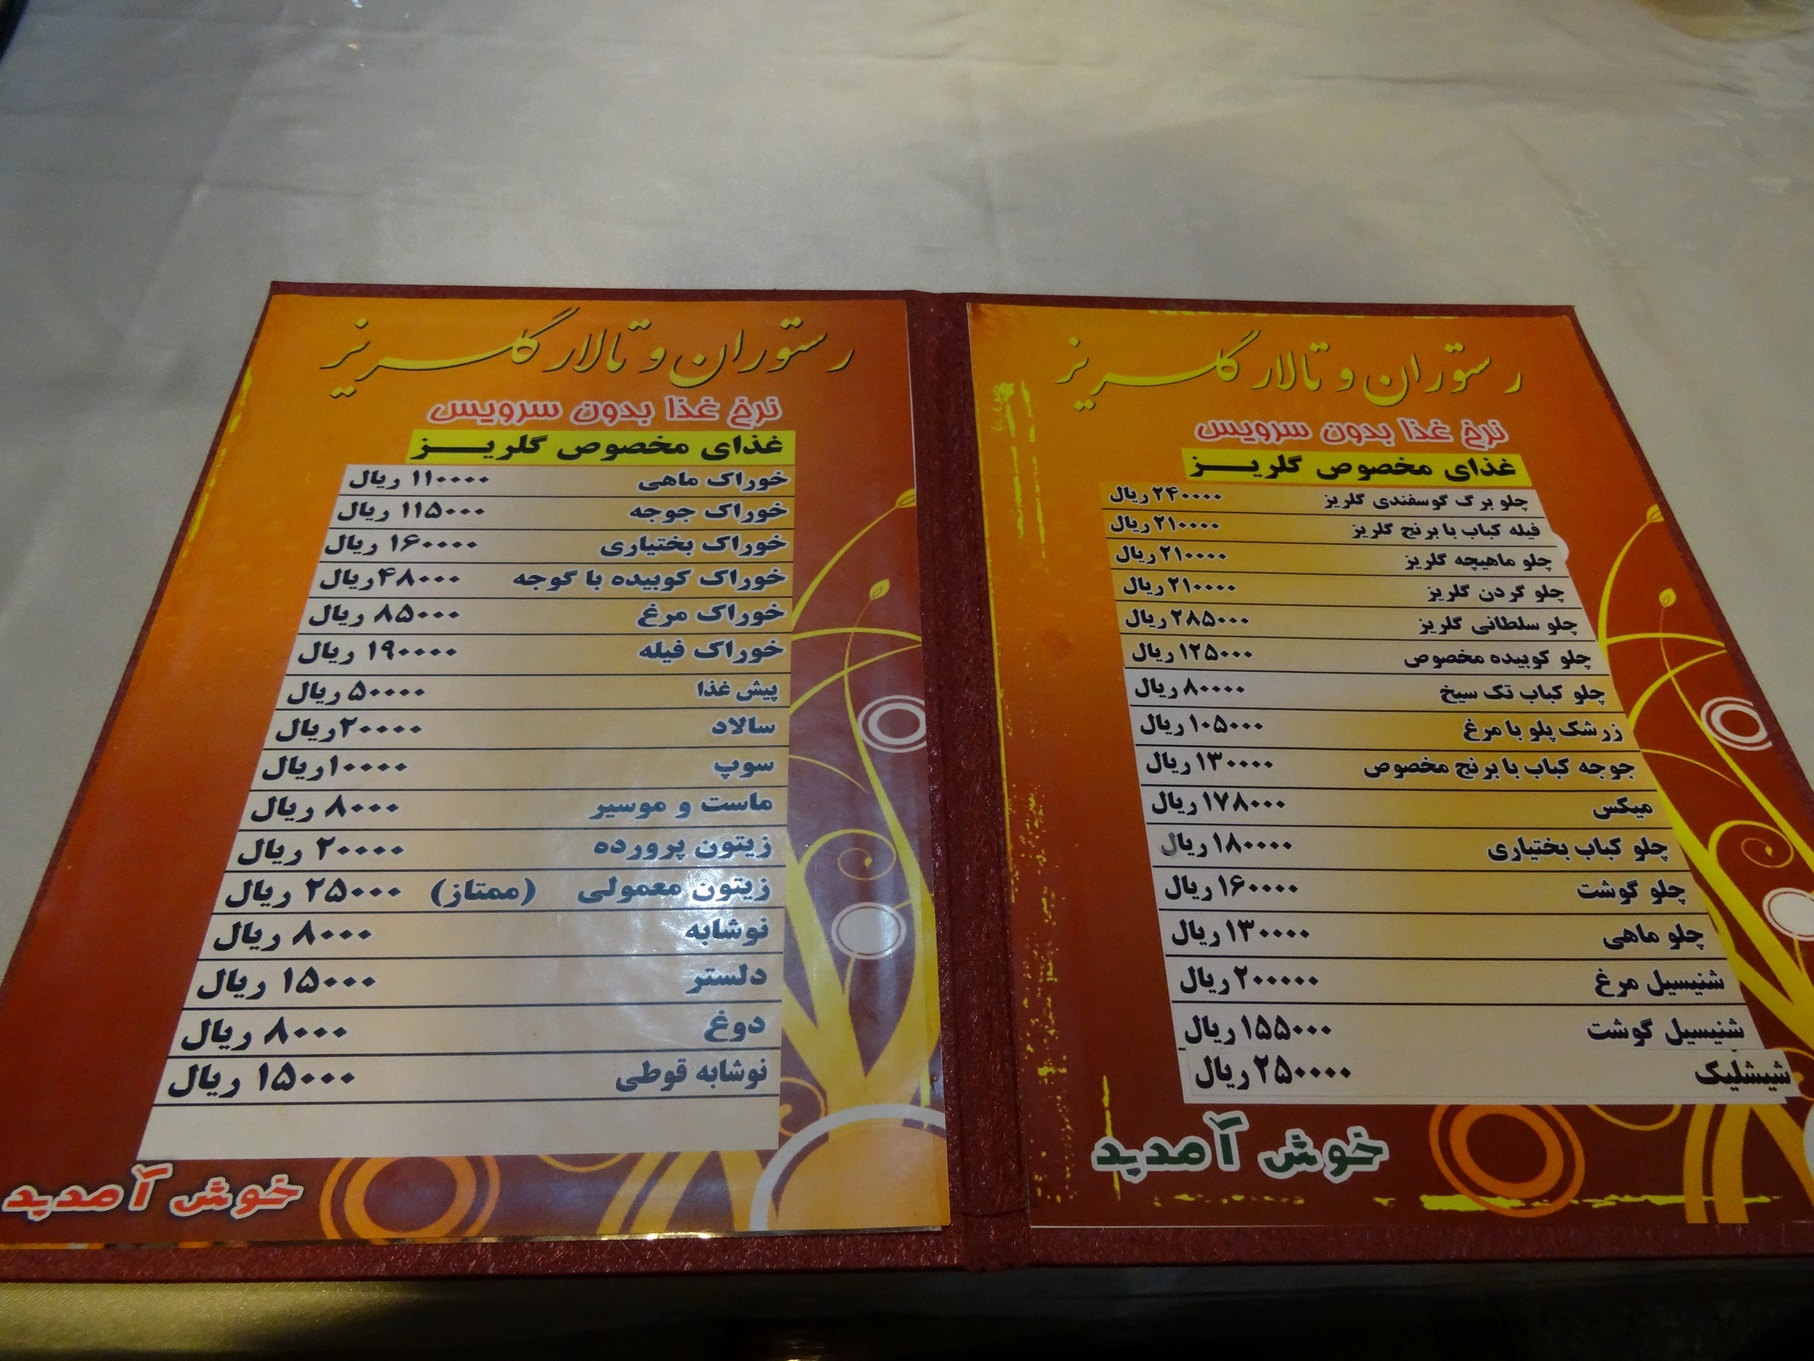 رستوران و تالار گلریز
نرخ غذا بدون سرویس
غذای مخصوص گلریـــز
چلو برگ گوسفندی گلریز ۲۴۰۰۰۰ ریال
فیله کباب با برنج گلریز ۲۱۰۰۰۰ ریال
چلو ماهیچه گلریز ۲۱۰۰۰۰ ریال
چلو گردن گلریز ۲۱۰۰۰۰ ریال
چلو سلطانی گلریز ۲۸۵۰۰۰ ریال
چلو کوبیده مخصوص ۱۲۵۰۰۰ ریال
چلو کباب تک سیخ ۸۰۰۰۰ ریال
زرشک پلو با مرغ ۱۰۵۰۰۰ ریال
جوجه کباب با برنج مخصوص ۱۳۰۰۰۰ ریال
میکس ۱۷۸۰۰۰ ریال
چلو کباب بختیاری ۱۸۰۰۰۰ ریال
چلو گوشت ۱۶۰۰۰۰ ریال
چلو ماهی ۱۳۰۰۰۰ ریال
شنیسیل مرغ ۲۰۰۰۰۰ ریال
شنیسیل گوشت ۱۵۵۰۰۰ ریال
شیشلیک ۲۵۰۰۰۰ ریال
خوش آمدید
رستوران و تالار گلریز
نرخ غذا بدون سرویس
غذای مخصوص گلریـــز
خوراک ماهی ۱۱۰۰۰۰ ریال
خوراک جوجه ۱۱۵۰۰۰ ریال
خوراک بختیاری ۱۶۰۰۰۰ ریال
خوراک کوبیده با گوجه ۴۸۰۰۰ ریال
خوراک مرغ ۸۵۰۰۰ ریال
خوراک فیله ۱۹۰۰۰۰ ریال
پیش غذا ۵۰۰۰۰ ریال
سالاد ۲۰۰۰۰ ریال
سوپ ۱۰۰۰۰ ریال
ماست و موسیر ۸۰۰۰ ریال
زیتون پرورده ۲۰۰۰۰ ریال
زیتون معمولی (ممتاز) ۲۵۰۰۰ ریال
نوشابه ۸۰۰۰ ریال
دلستر ۱۵۰۰۰ ریال
دوغ ۸۰۰۰ ریال
نوشابه قوطی ۱۵۰۰۰ ریال
خوش آمدید